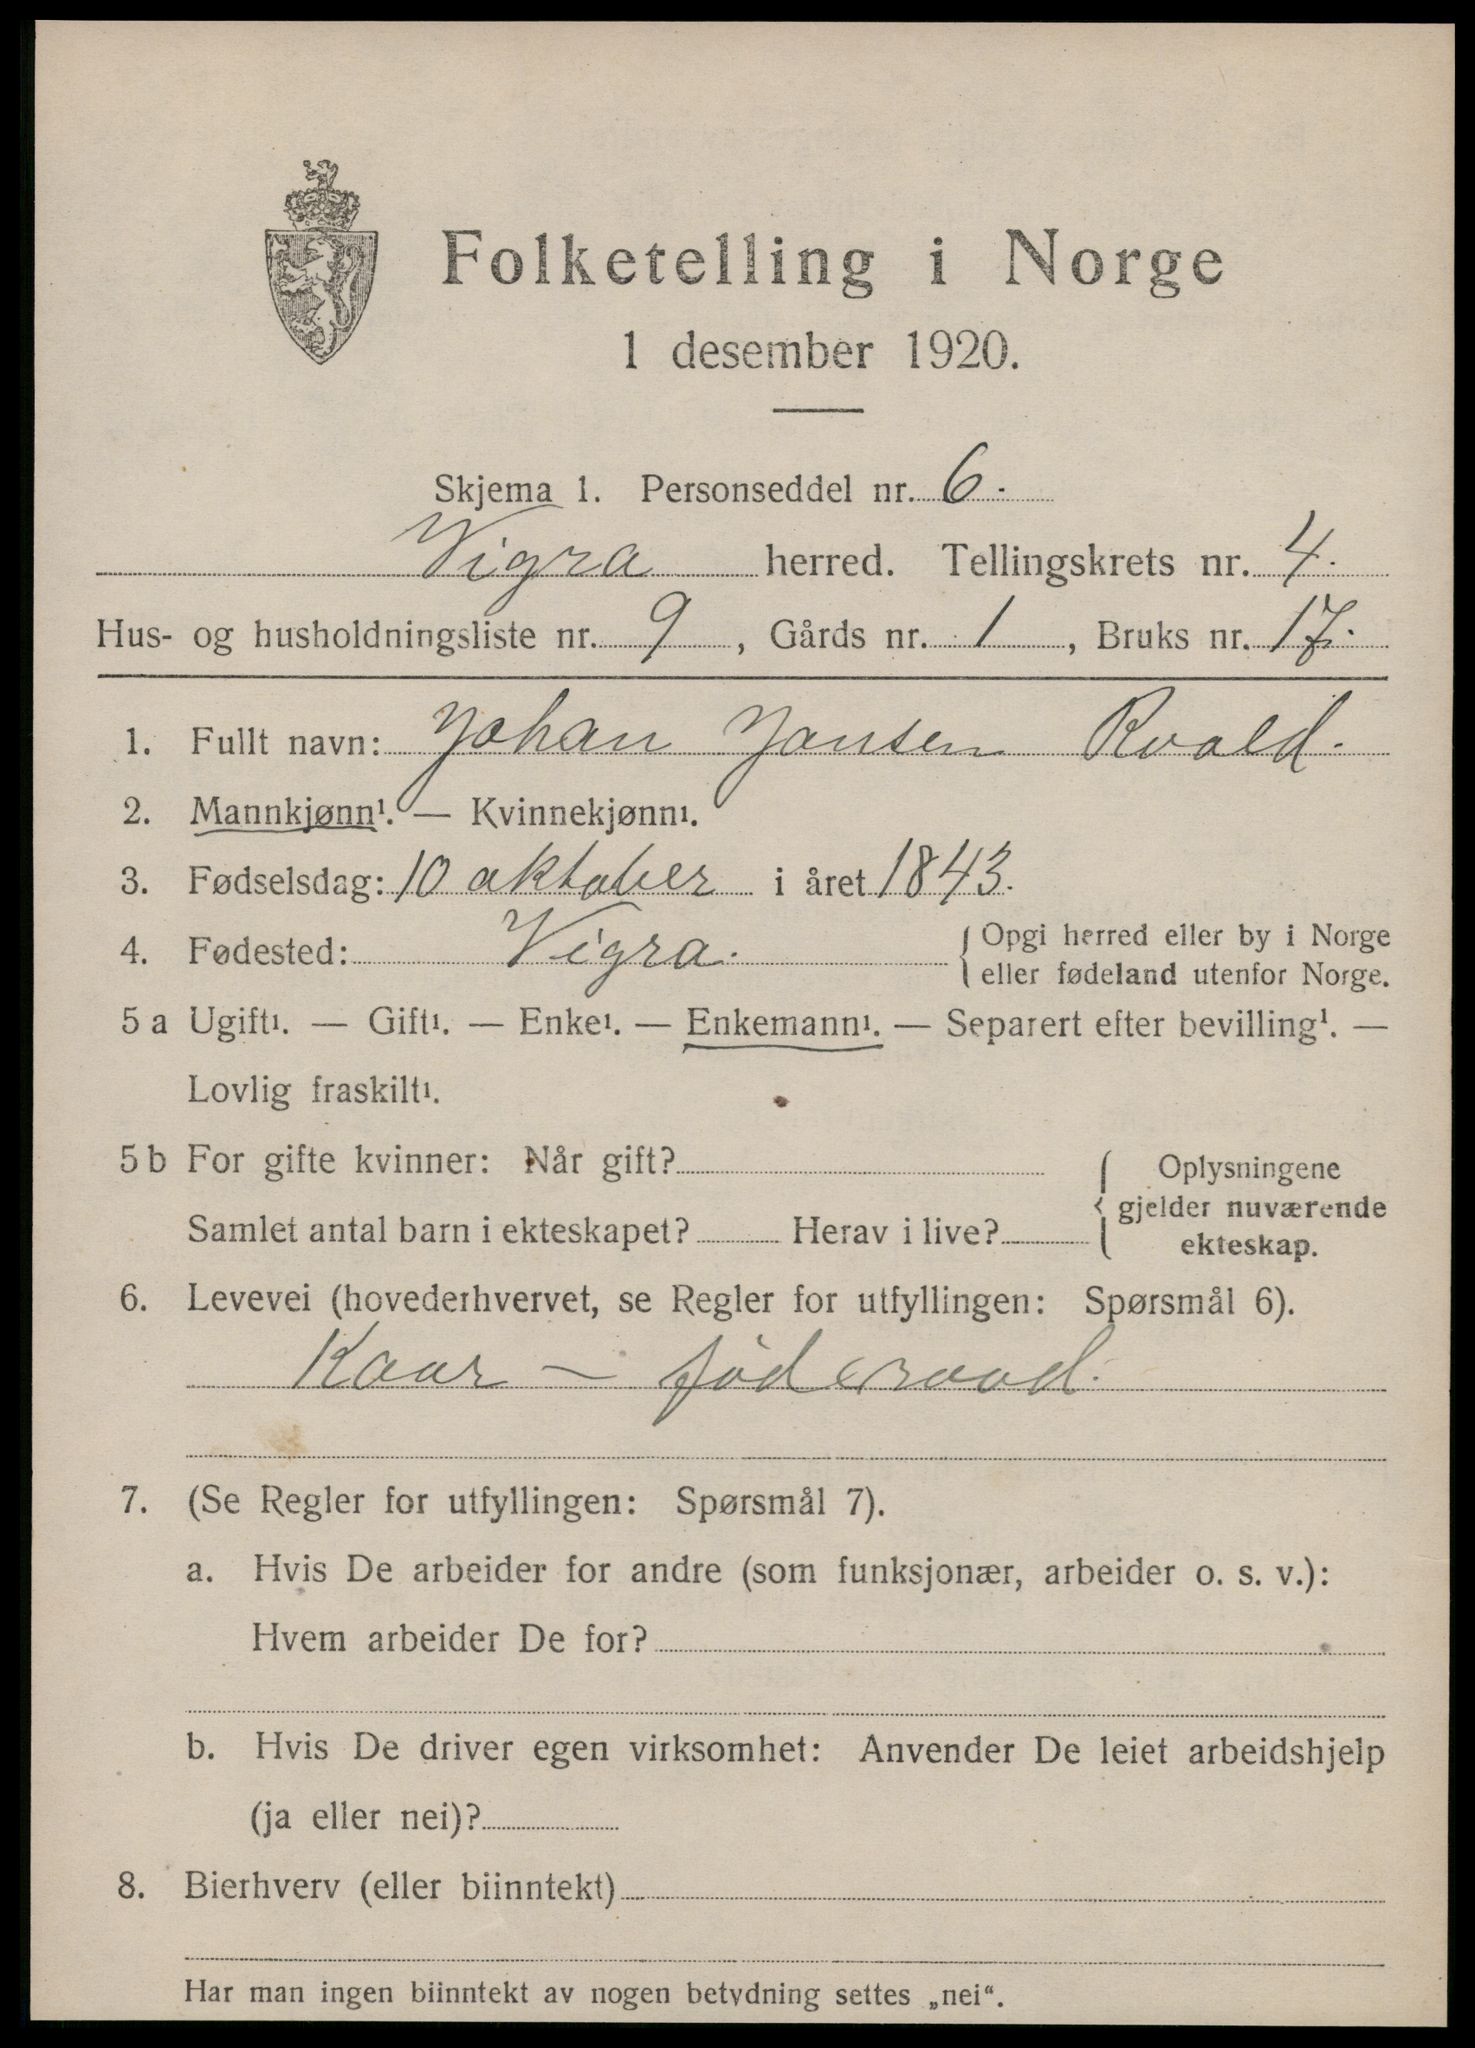 Folketelling i Norge
1 desember 1920.
Skjema 1. Personseddel nr. 6.
Vigra herred. Tellingskrets nr. 4.
Hus- og husholdningsliste nr. 9, Gårds nr. 1, Bruks nr. 17.
1. Fullt navn: Johan Jansen Roald.
2. Mannkjønn¹. — Kvinnekjønn¹.
3. Fødselsdag: 10 oktober i året 1843.
4. Fødested: Vigra. { Opgi herred eller by i Norge
eller fødeland utenfor Norge.
5 a Ugift¹. — Gift¹. — Enke¹. — Enkemann¹. — Separert efter bevilling¹. —
Lovlig fraskilt¹.
5 b For gifte kvinner: Når gift? { Oplysningene
gjelder nuværende
Samlet antal barn i ekteskapet? Herav i live? ekteskap.
6. Levevei (hovederhvervet, se Regler for utfyllingen: Spørsmål 6).
Kaar - föderaad.
7. (Se Regler for utfyllingen: Spørsmål 7).
a. Hvis De arbeider for andre (som funksjonær, arbeider o. s. v.):
Hvem arbeider De for?
b. Hvis De driver egen virksomhet: Anvender De leiet arbeidshjelp
(ja eller nei)?
8. Bierhverv (eller biinntekt)
Har man ingen biinntekt av nogen betydning settes „nei“.